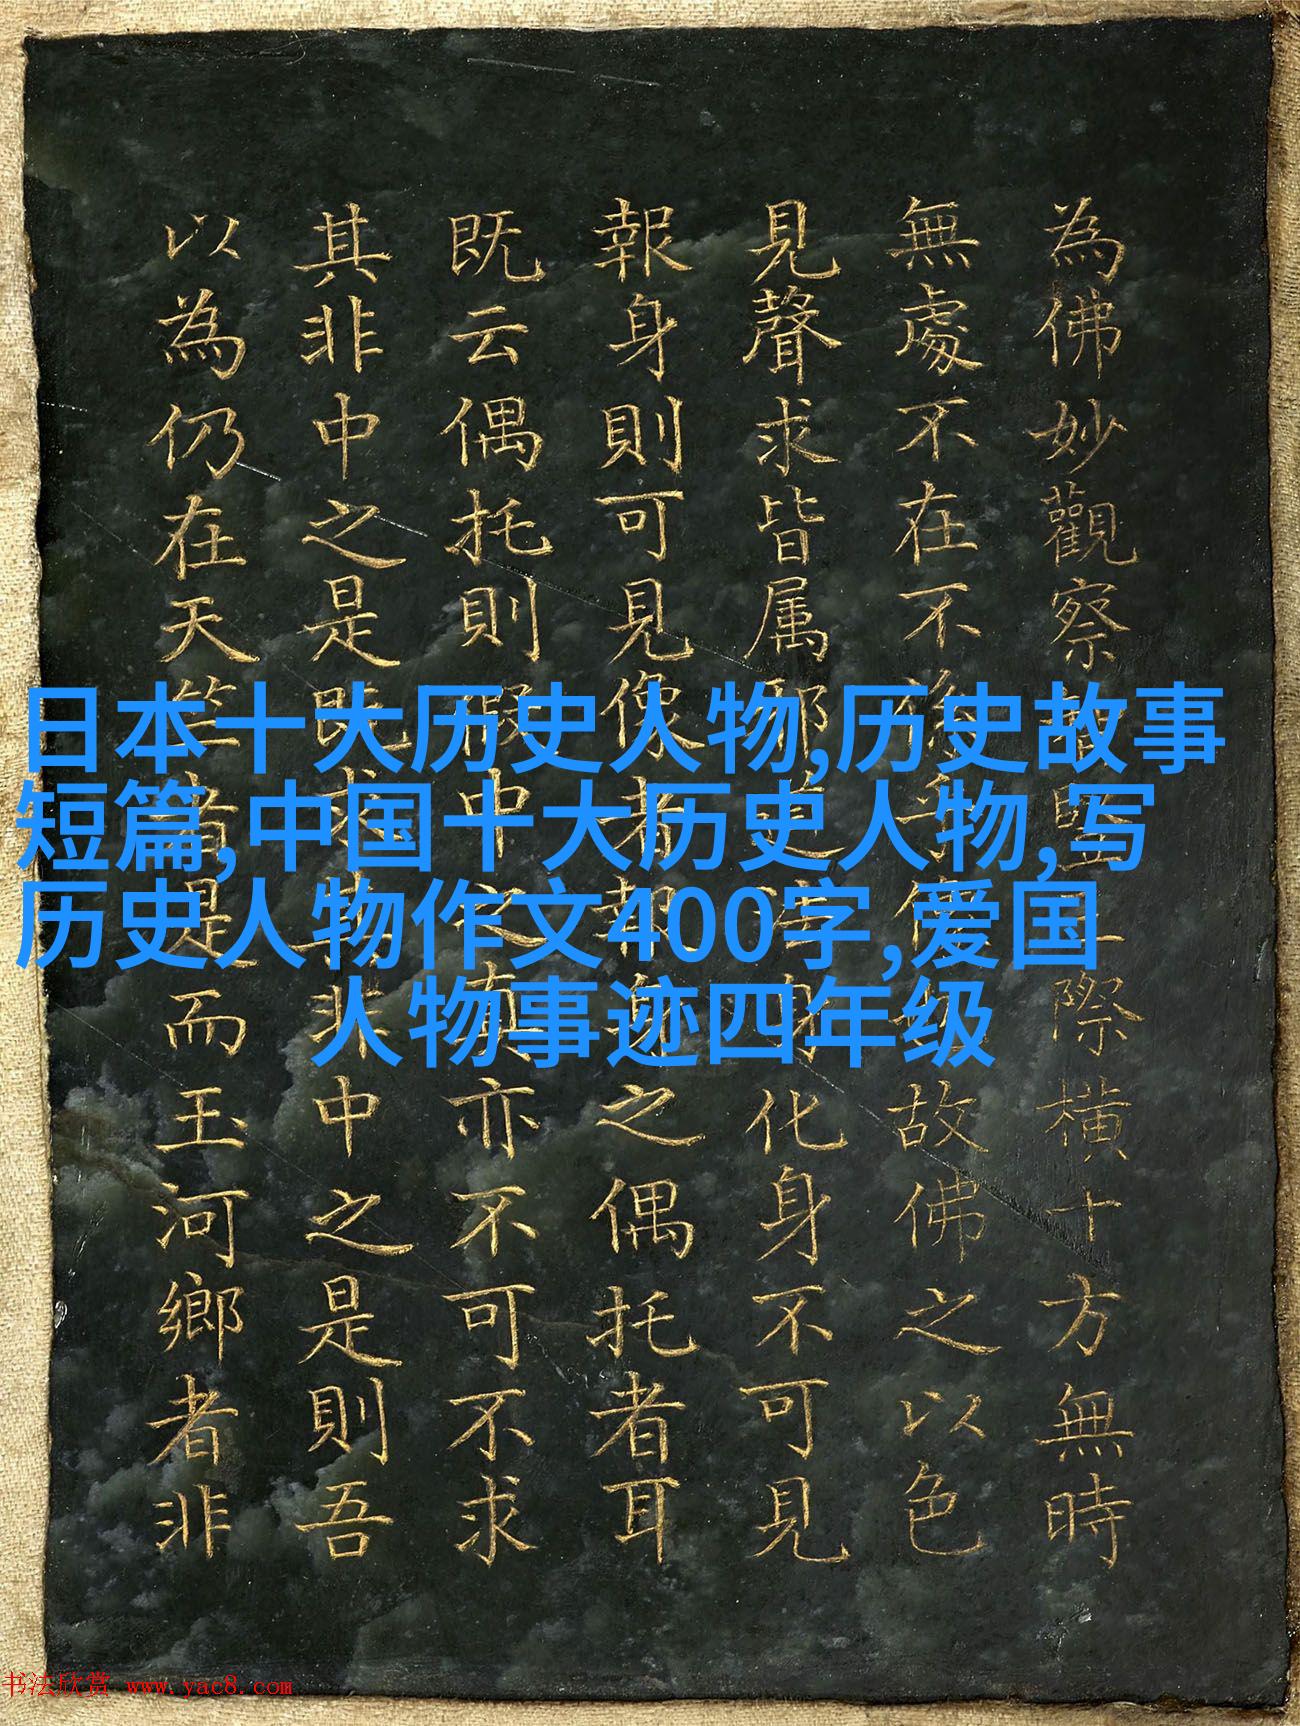 為佛妙觀察智竪三際横十方無時
無處不在不故佛之以色
見聲求皆属邪道法身化身不可見
報身則可見像者報身之偶托者耳
既云偶托則假中之真亦不可不求
其非中之是既求其非中之是則吾
以為仍在天竺者是而玉河鄉者非
日本十大历史人物,历史故事
短篇,中国十大历史人物,写
历史人物作文400字,爱国
人物事迹四年级
书法欣赏 www.yac8.com